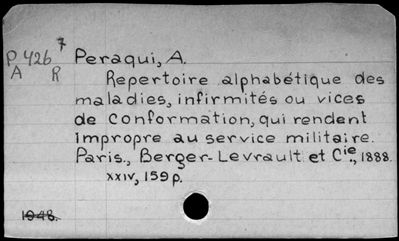 P 426 7
A R
Peraqui, A.
Repertoire alphabétique des
maladies, infirmités ou vices
de conformation, qui rendent
impropre au service militaire.
Paris., Berger-Levrault et Cie., 1888.
xxiv, 159p.
1948.